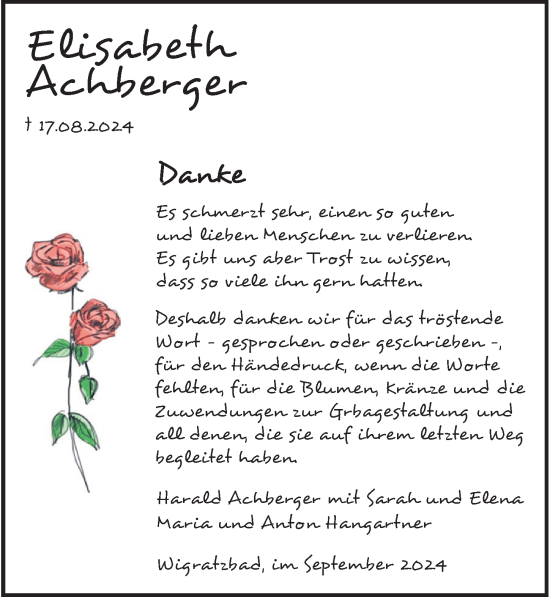 Elisabeth
Achberger
† 17.08.2024
Danke
Es schmerzt sehr, einen so guten
und lieben Menschen zu verlieren.
Es gibt uns aber Trost zu wissen,
dass so viele ihn gern hatten.
Deshalb danken wir für das tröstende
Wort - gesprochen oder geschrieben -,
für den Händedruck, wenn die Worte
fehlten, für die Blumen, Kränze und die
Zuwendungen zur Grbagestaltung und
all denen, die sie auf ihrem letzten Weg
begleitet haben.
Harald Achberger mit Sarah und Elena
Maria und Anton Hangartner
Wigratzbad, im September 2024